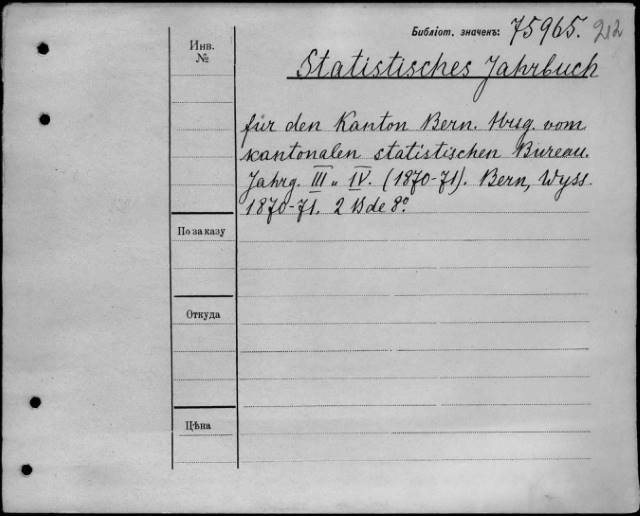 Библіот. значекъ: 75965. 212
Инв.
№
Statistisches Jahrbuch
für den Kanton Bern. Hrsg. vom
kantonalen statistischen Bureau.
Jahrg. III u IV. (1870-71). Bern, Wyss.
1870-71. 2 Bde 8º.
По заказу
Откуда
Цѣна